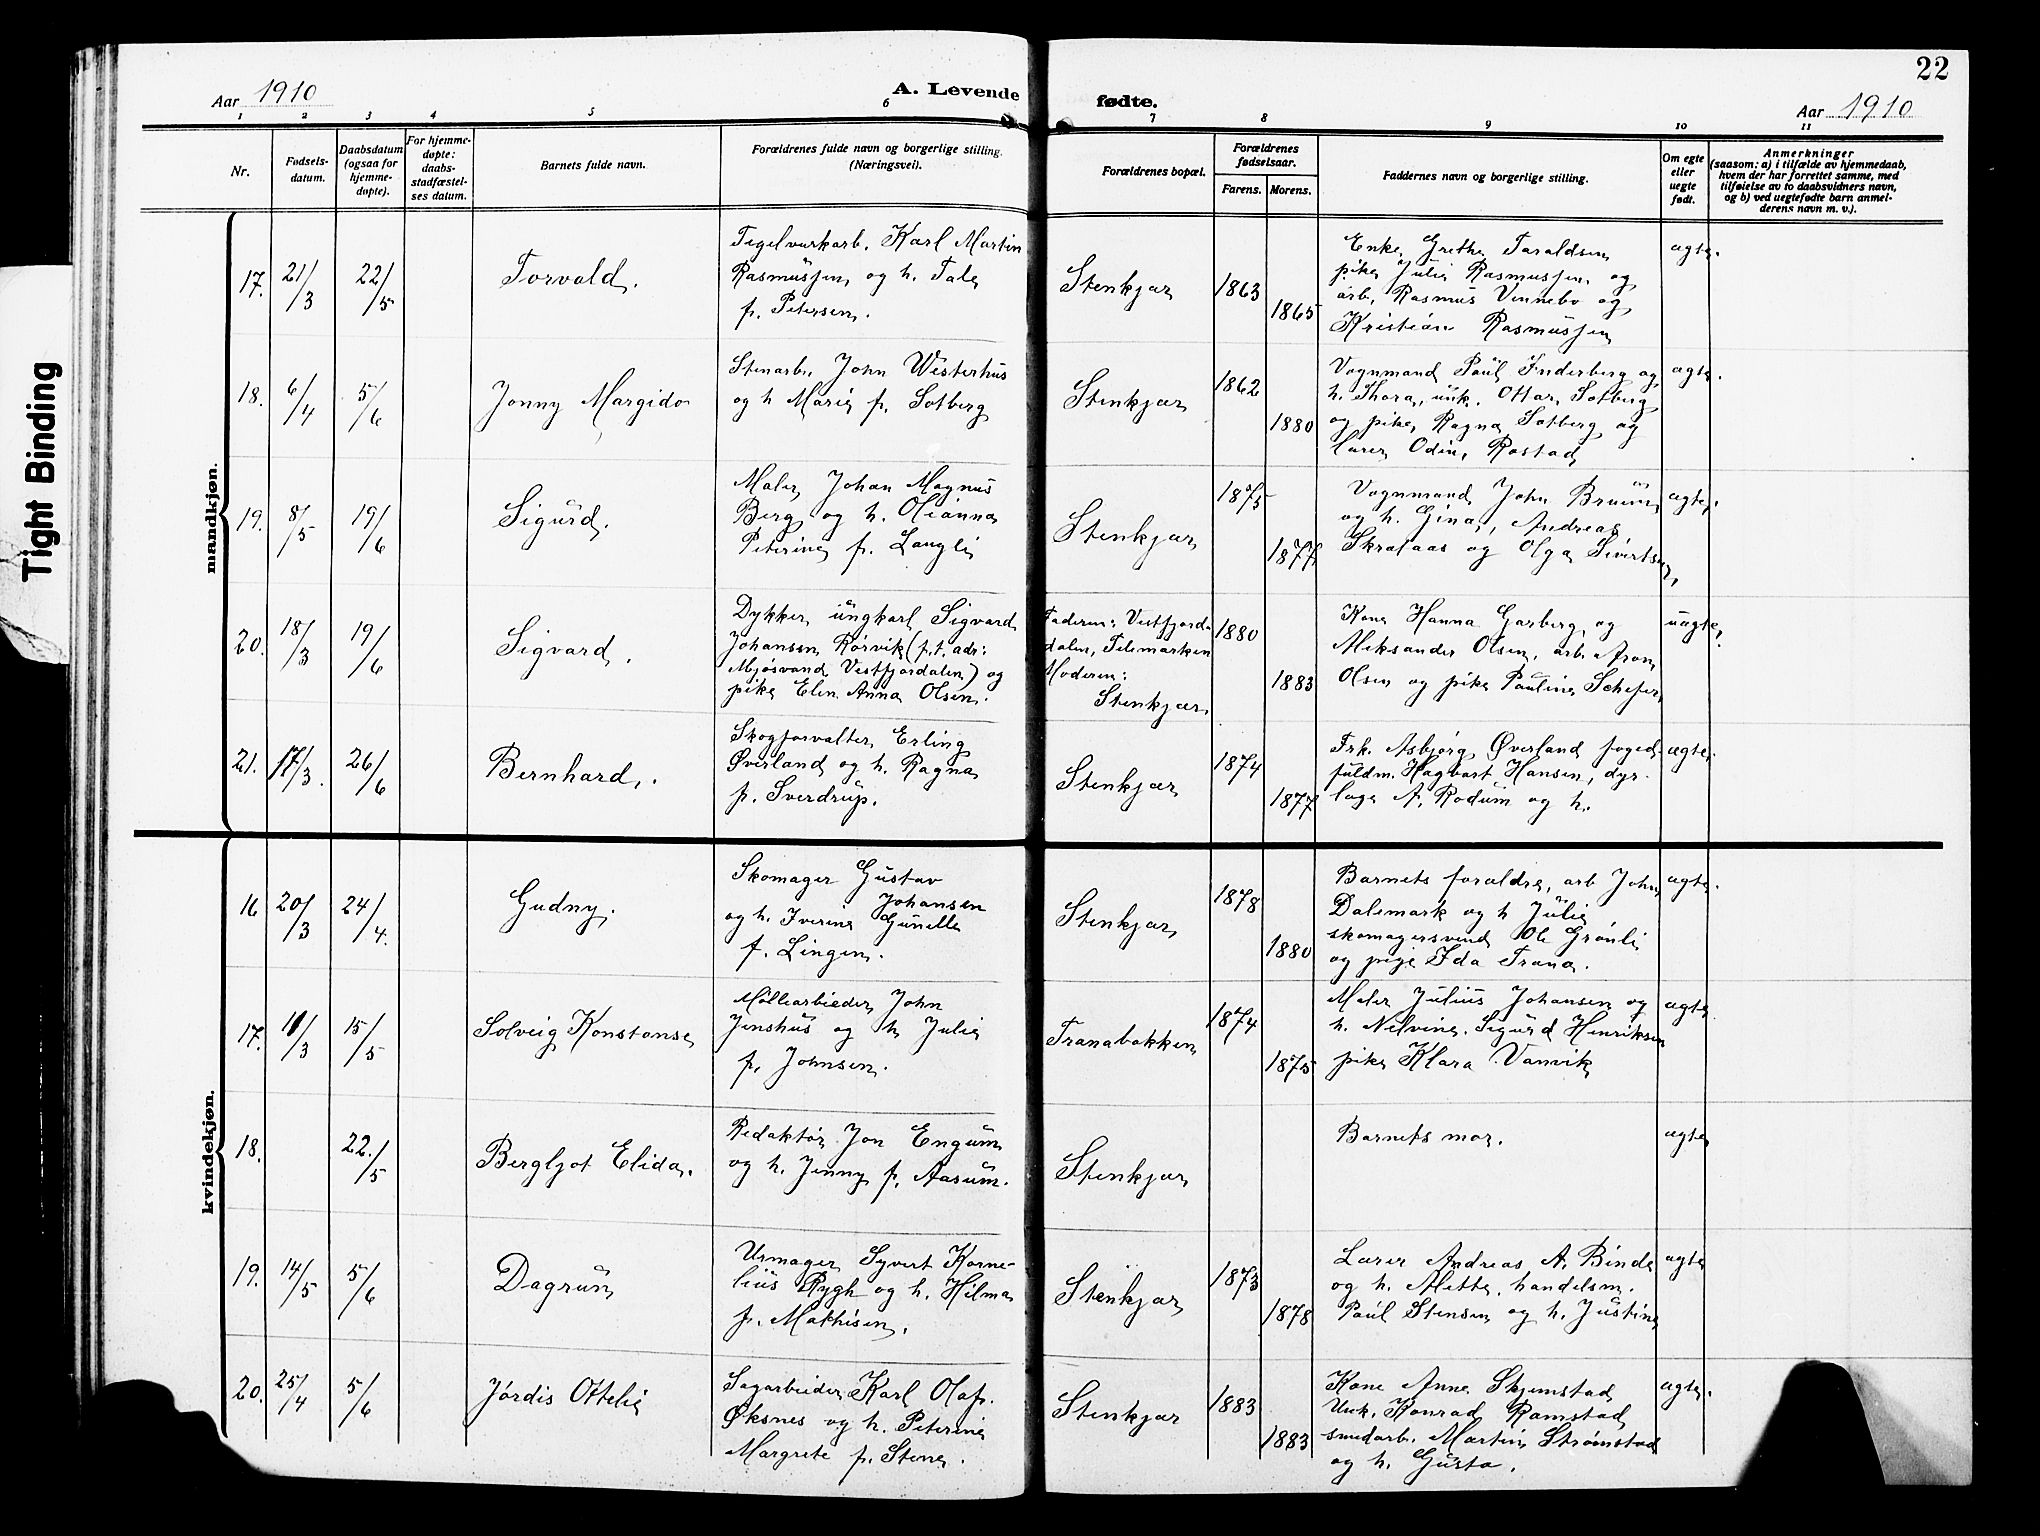 22
Aar 1910
A. Levende
fødte.
Aar 1910
1 2 3 4 5 6 7 8 9 10 11
Nr.
Fødsels-
datum.
Daabsdatum
(ogsaa for
hjemme-
døpte).
For hjemme-
døpte:
daabs-
stadfæstel-
ses datum.
Barnets fulde navn.
Forældrenes fulde navn og borgerlige stilling.
(Næringsvei).
Forældrenes bopæl.
Forældrenes
fødselsaar.
Farens. Morens.
Faddernes navn og borgerlige stilling.
Om egte
eller
uegte
født.
Anmerkninger
(saasom: a) i tilfælde av hjemmedaab,
hvem der har forrettet samme, med
tilføielse av to daabsvidners navn,
og b) ved uegtefødte barn anmel-
derens navn m. v.).
mandkjøn.
17. 21/3 22/5
Torvald.
Teglverkarb. Karl Martin
Rasmussen og h. Tale
f. Petersen.
Stenkjær
1863
1865
Enke Grethe Taraldsen
pike Julie Rasmussen og
arb. Rasmus Vennebo og
Kristian Rasmussen
ægte.
18. 6/4 5/6
Jonny Margido
Stenarb. John Westerhus
og h Marie f. Sotberg
Stenkjær
1862
1880
Vognmand Paul Inderberg og
h. Thora, unk. Ottar Sotberg
og pike Ragna Sotberg og
lærer Odin Rostad
ægte.
19. 8/5 19/6
Sigurd.
Maler Johan Magnus
Berg og h. Olianna
Peterine f. Langli
Stenkjær
1875
1877
Vognmand John Bruun
og h. Gina, Andreas
Skrataas og Olga Sivertsen
ægte.
20. 18/3 19/6
Sigvard.
Dykker ungkarl Sigvard
Johansen Rörvik (p.t. adr:
Mjösvand Vestfjordalen) og
pike Elen Anna Olsen.
Faderen: Vestfjord-
dalen, Telemarken
Moderen:
Stenkjær
1880
1883
Kone Hanna Garberg og
Aleksander Olsen, arb. Aron
Olsen og pike Pauline Schefer
uægte.
21. 17/3. 26/6
Bernhard.
Skogforvalter Erling
Øverland og h. Ragna
f. Sverdrup.
Stenkjær
1874
1877
Frk. Asbjørg Øverland foged-
fuldm. Hagbart Hansen, dyr-
læge A. Rodum og h.
ægte.
kvindekjøn.
16 20/3 24/4.
Gudny.
Skomager Gustav
Johansen
og h. Iverine Gunelle
f. Lingen.
Stenkjær
1878
1880
Barnets forældre, arb John
Dalemark og h Julie
skomagersvend Ole Grönli
og pige Ida Trana.
ægte.
17. 11/3 15/5
Solveig Konstanse
Möllearbeider John
Jenshus og h Julie
f. Johnsen.
Tranabakken
1874
1875
Maler Julius Johansen og
h. Nelvine. Sigurd Henriksen
pike Klara Vanvik
ægte
18. 22./5
Bergljot Elida.
Redaktör Jon Engum
og h. Jenny f. Aasum.
Stenkjær
Barnets mor.
ægte
19. 14/5 5/6
Dagrun
Urmager Syvert Korne-
lius Rygh og h. Hilma
f. Mathisen.
Stenkjær
1873
1878
Lærer Andreas A. Binde
og h. Mette, handelsm.
Paul Stensen og h. Justine
ægte
20. 25/4 5/6
Jördis Ottelie
Sagarbeider Karl Olaf
Øksnes og h. Peterine
Margrete f. Stene.
Stenkjær
1883
1883
Kone Anne Skjemstad
Unk. Konrad Ramstad
smedarb. Martin Strömstad
og h. Gusta.
ægte.
Tight Binding